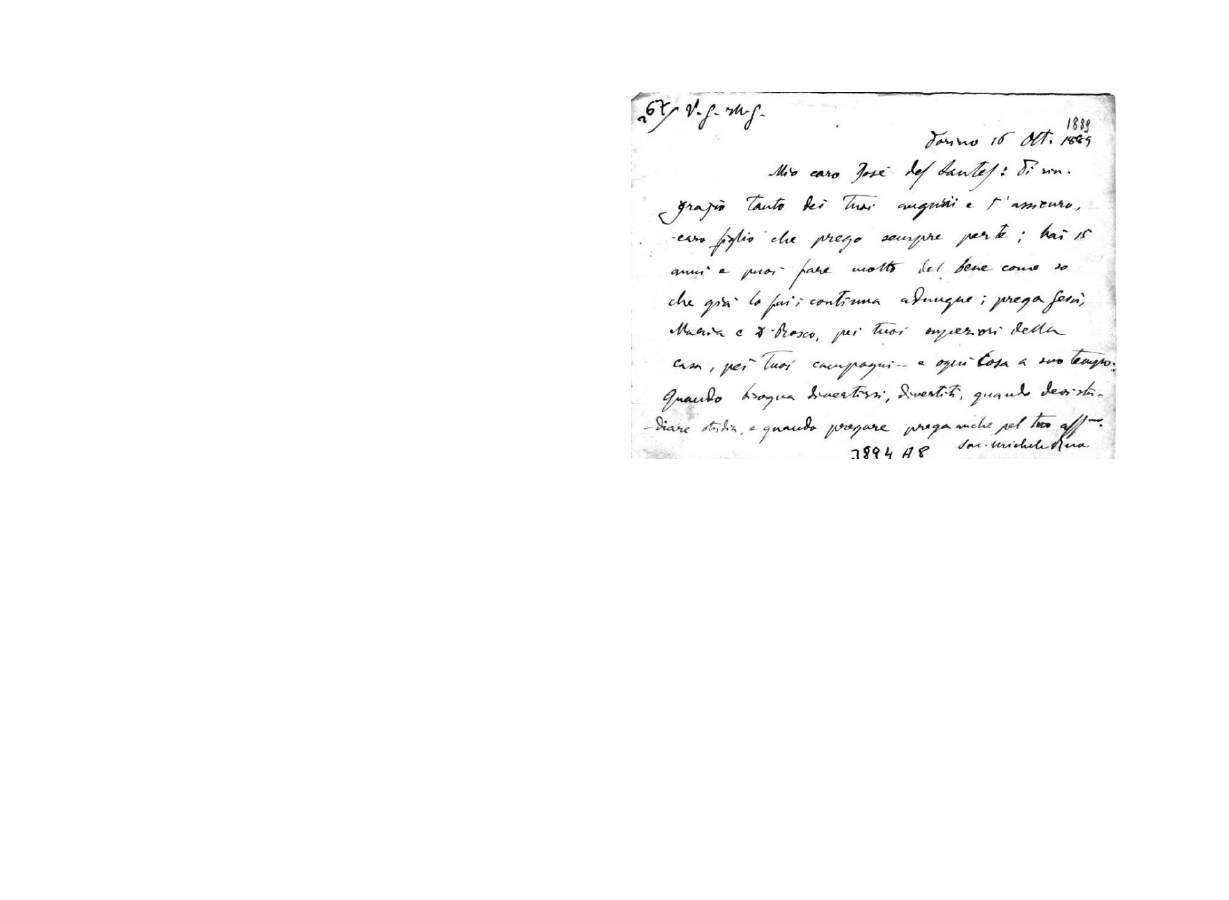 267) V. G. M. G.
1889
Torino 16 Ott. 1889
Mio caro José des Santes: Ti rin-
grazio tanto dei tuoi augurii e t'assicuro,
caro figlio che prego sempre per te; hai 15
anni e puoi fare molto del bene come so
che già lo fai; continua adunque; prega Gesù,
Maria e D. Bosco, pei tuoi superiori della
casa, pei tuoi compagni... e ogni cosa a suo tempo.
Quando bisogna divertirsi, divertiti, quando devi stu-
diare studia, e quando pregare prega anche pel tuo aff.mo
Sac. Michele Rua
3894 A8